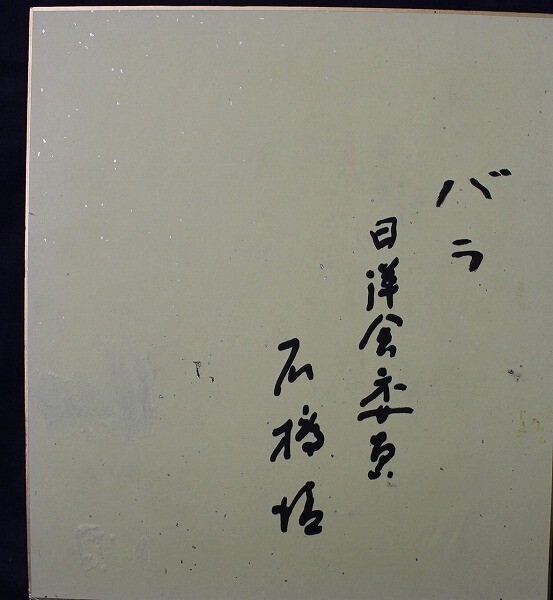 バラ
日洋会委員
石橋